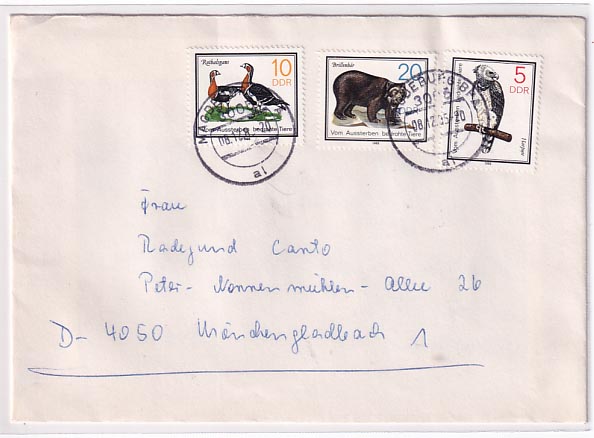 Rothalsgans
10
DDR
Vom Aussterben bedrohte Tiere
Brillenbär
20
DDR
Vom Aussterben bedrohte Tiere
5
DDR
Vom Aussterben
Harpyie
MAGDEBURG
08.12.85-20
al
MAGDEBURG BPA
3015
08.12.85-20
al
Frau
Radegund Canto
Peter-Nonnenmühlen-Allee 26
D-4050 Mönchengladbach 1